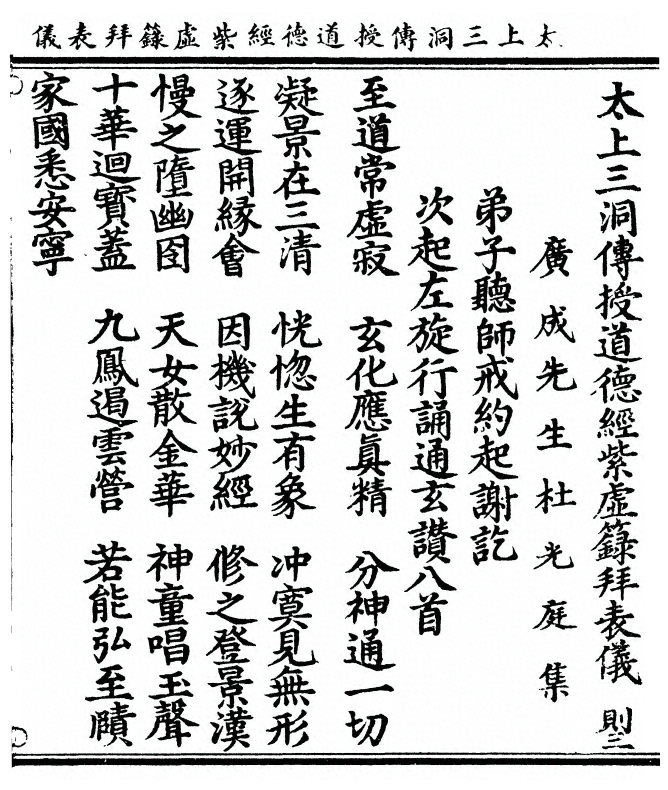 太上三洞傳授道德經紫虛籙拜表儀
太上三洞傳授道德經紫虛籙拜表儀 則三
廣成先生杜光庭集
弟子聽師戒約起謝訖
次起左旋行誦通玄讚八首
至道常虛寂 玄化應真精 分神通一切
凝景在三清 恍惚生有象 冲寞見無形
逐運開緣會 因機說妙經 修之登景漢
慢之墮幽囹 天女散金華 神童唱玉聲
十華迴寶蓋 九鳳遏雲營 若能弘至賾
家國悉安寧